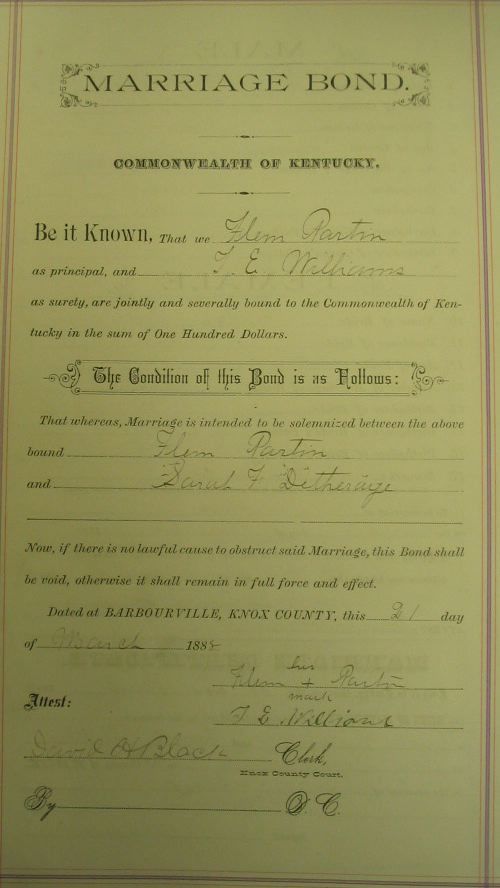 MARRIAGE BOND.
COMMONWEALTH OF KENTUCKY.
Be it Known, That we Flem Partin
as principal, and T. E. Williams
as surety, are jointly and severally bound to the Commonwealth of Ken-
tucky in the sum of One Hundred Dollars.
The Condition of this Bond is as Follows:
That whereas, Marriage is intended to be solemnized between the above
bound Flem Partin
and Sarah F Detherage
Now, if there is no lawful cause to obstruct said Marriage, this Bond shall
be void, otherwise it shall remain in full force and effect.
Dated at BARBOURVILLE, KNOX COUNTY, this 21 day
of March 1888
his
Flem + Partin
mark
Attest:
T E Williams
David H Black Clerk,
Knox County Court.
By D. C.